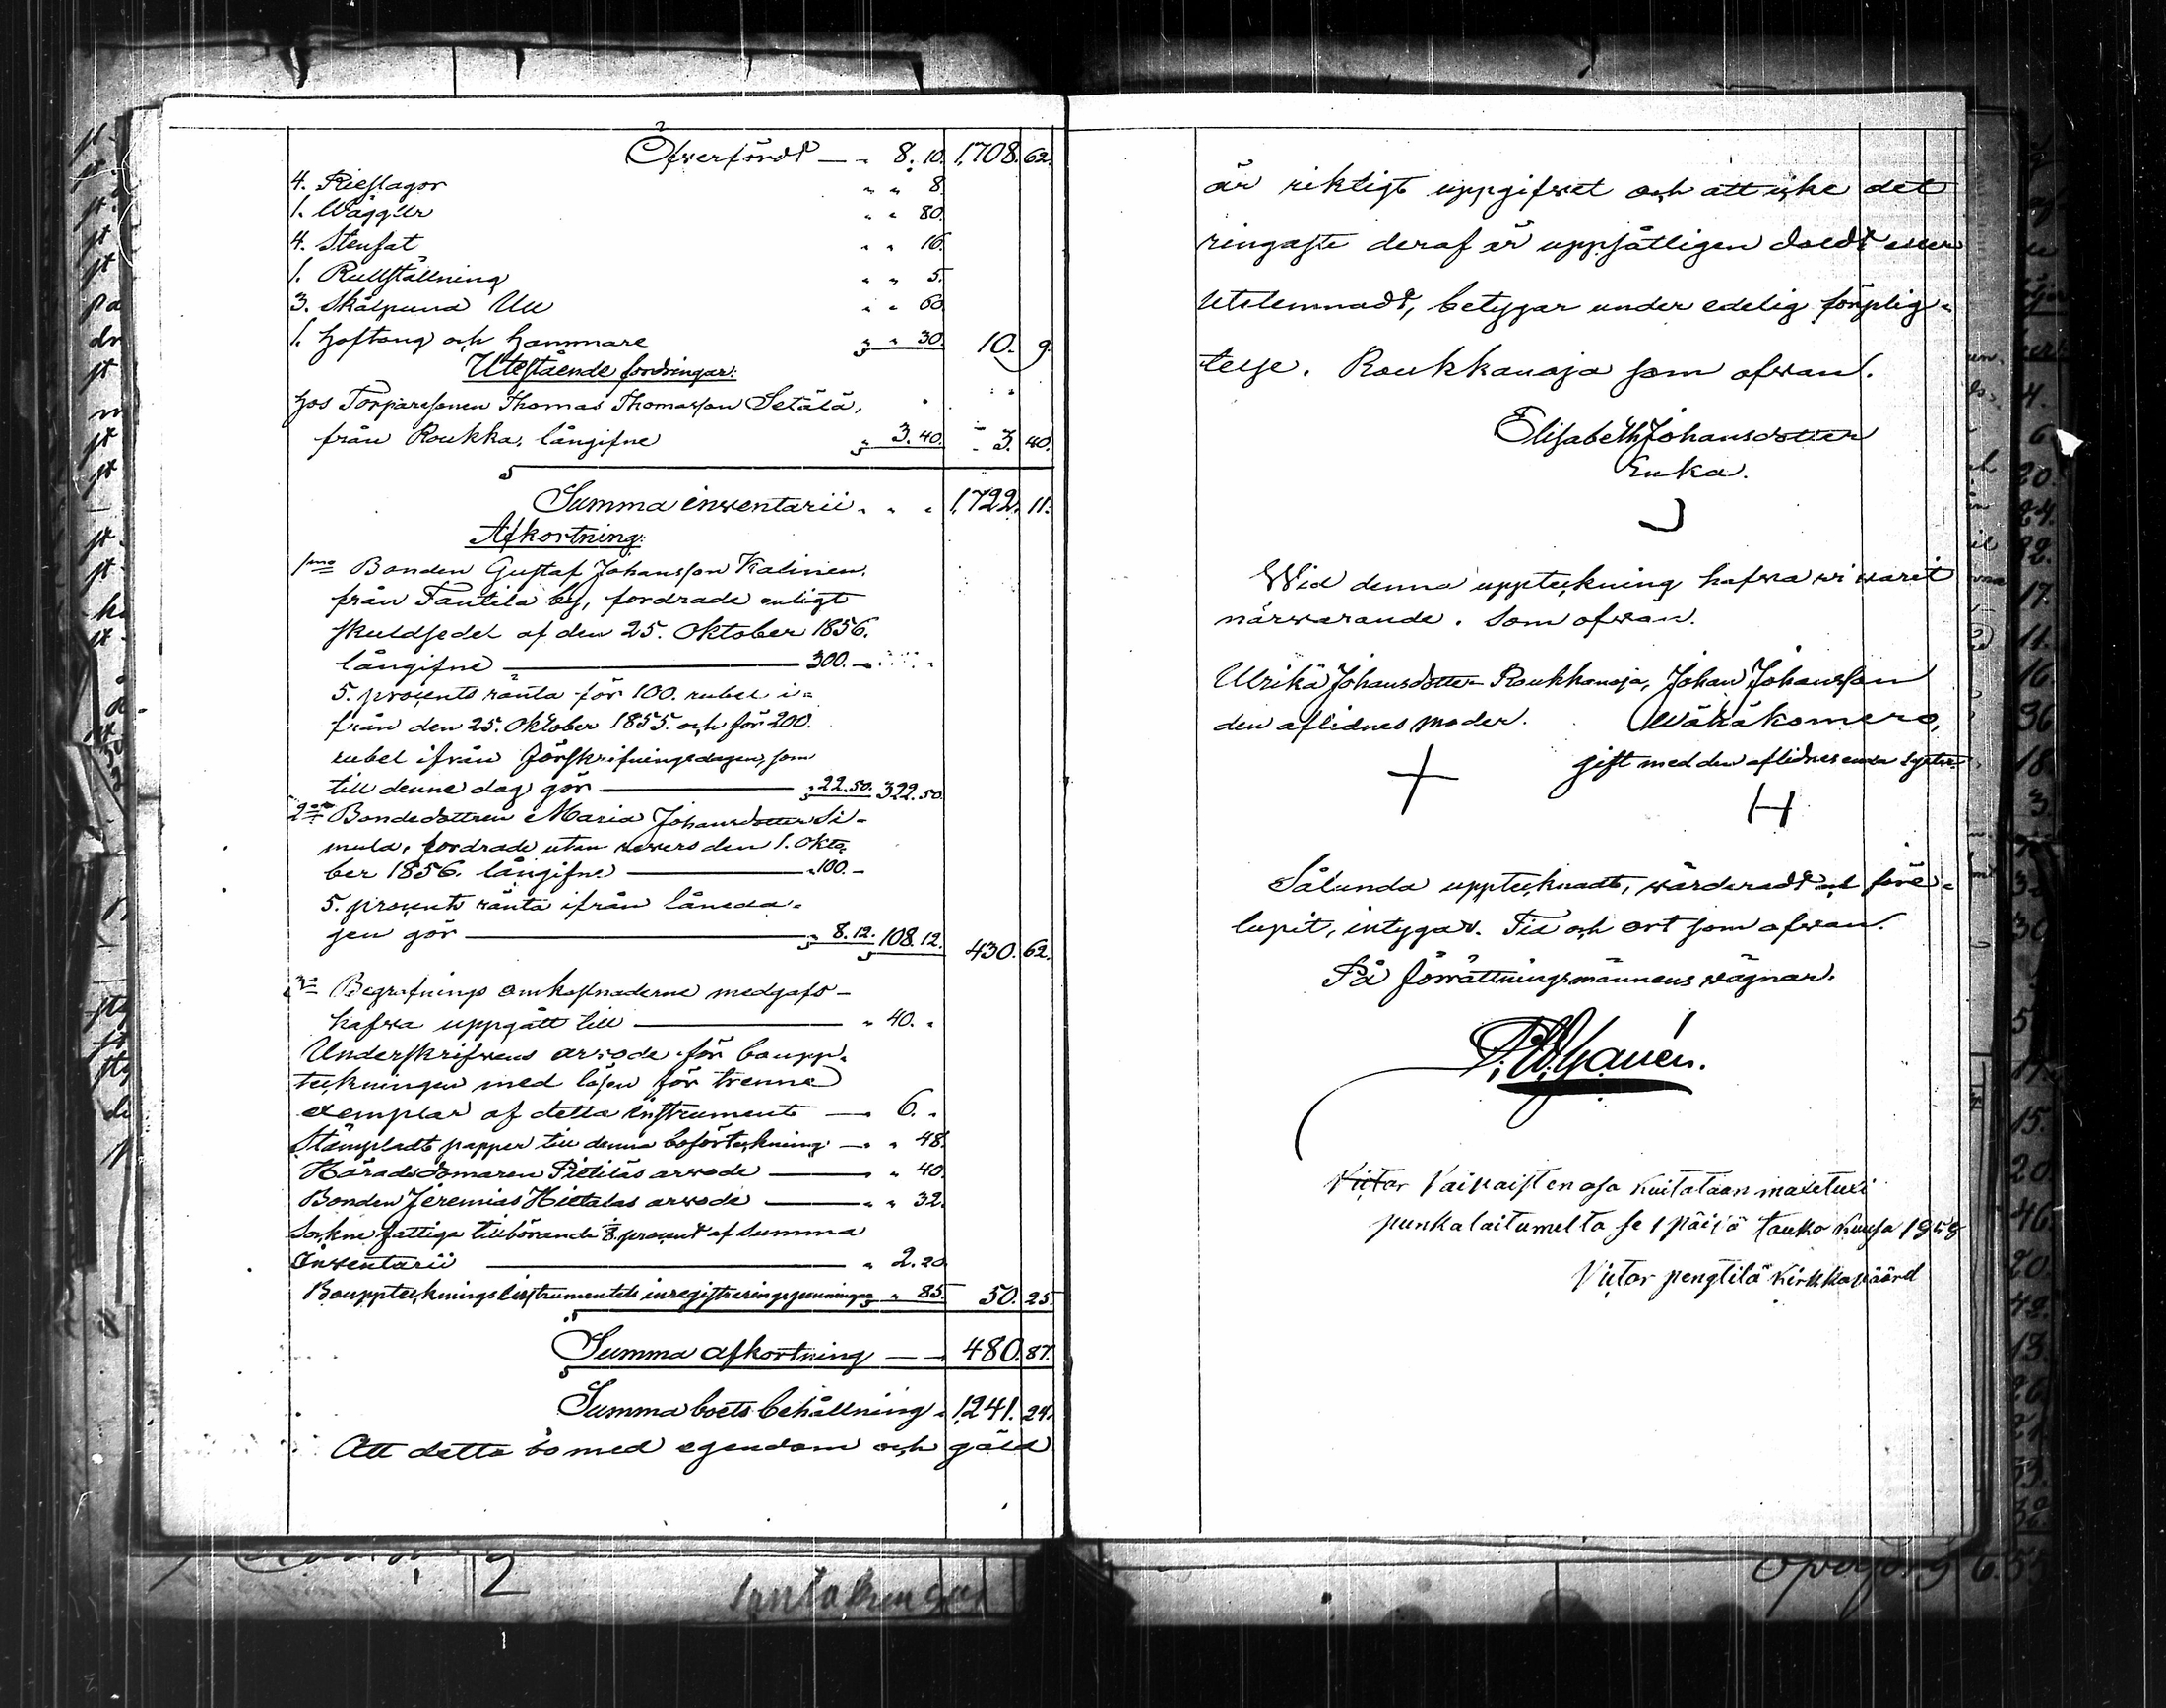 Öfwerfördt — „ 8. 10. 1,708. 62.
4. Rieslagor „ „ 8.
1. Wägg Ur „ „ 80.
4. Stenfat „ „ 16.
1. Rullställning „ „ 5.
3. Skålpund Ull „ „ 60.
1. Hoftång och Hammare „ „ 30. 10. 9.
Utestående fordringar:
hos Torparesonen Thomas Thomasson Setälä,
från Roukka, långifne „ 3. 40. 3. 40.
Summa inventarii „ „ „ 1,722. 11.
Afkortning:
1mo Bonden Gustaf Johansson Kalinen,
från Tantila by, fordrade enligt
skuldsedel af den 25. Oktober 1856.
långifne — 300. —
5. procents ränta för 100. rubel i-
från den 25. Oktober 1855. och för 200.
rubel ifrån förskrifningsdagen, som
till denne dag gör — „ 22. 50. 322. 50.
2do Bondedottren Maria Johansdotter Si-
mula, fordrade utan revers den 1. Okto-
ber 1856. långifne — „ 100. —
5. procents ränta ifrån låneda-
gen gör — „ 8. 12. 108. 12. 430. 62.
3o Begrafnings omkostnaderne medgafs
hafwa uppgått till — „ 40. „
Underskrifwens arwode för boupp-
teckningen med lösen för trenne
exemplar af detta instrument — 6. „
Stämpladt papper till denna boförteckning — „ „ 48.
Häradsdomaren Pietiläs arwode — „ 40.
Bonden Jeremias Hietalas arwode — „ „ 32.
Sockne fattiga tillhörande 1/8 procent af Summa
Inventarii — „ 2. 20
Bouppteckningsinstrumentets inregistreringspenningar „ 85. 50. 25.
Summa afkortning — 480. 87.
Summa boets behållning „ 1,241. 24.
Att detta bo med egendom och gäld
är riktigt uppgifwet och att icke det
ringaste deraf är uppsåtligen doldt eller
utelemnadt, betygar under edelig förplig-
telse. Roukkanoja som ofwan.
Elisabeth Johansdotter
Enka.
Wid denna uppteckning hafwa wi warit
närwarande. Som ofwan.
Ulrikä Johansdotter Roukkanoja, Johan Johansson
den aflidnes moder. Wähäkomero,
gift med den aflidnes enda syster.
Sålunda upptecknadt, wärderadt och före-
lupit, intygar. Tid och ort som ofwan.
På förrättningsmännens wägnar.
Victor Vaivaisten osa kuitataan maxetuxi
punkalaitumella se 1 päivä touko kuusa 1858
Victor pengtilä kirkkovääred